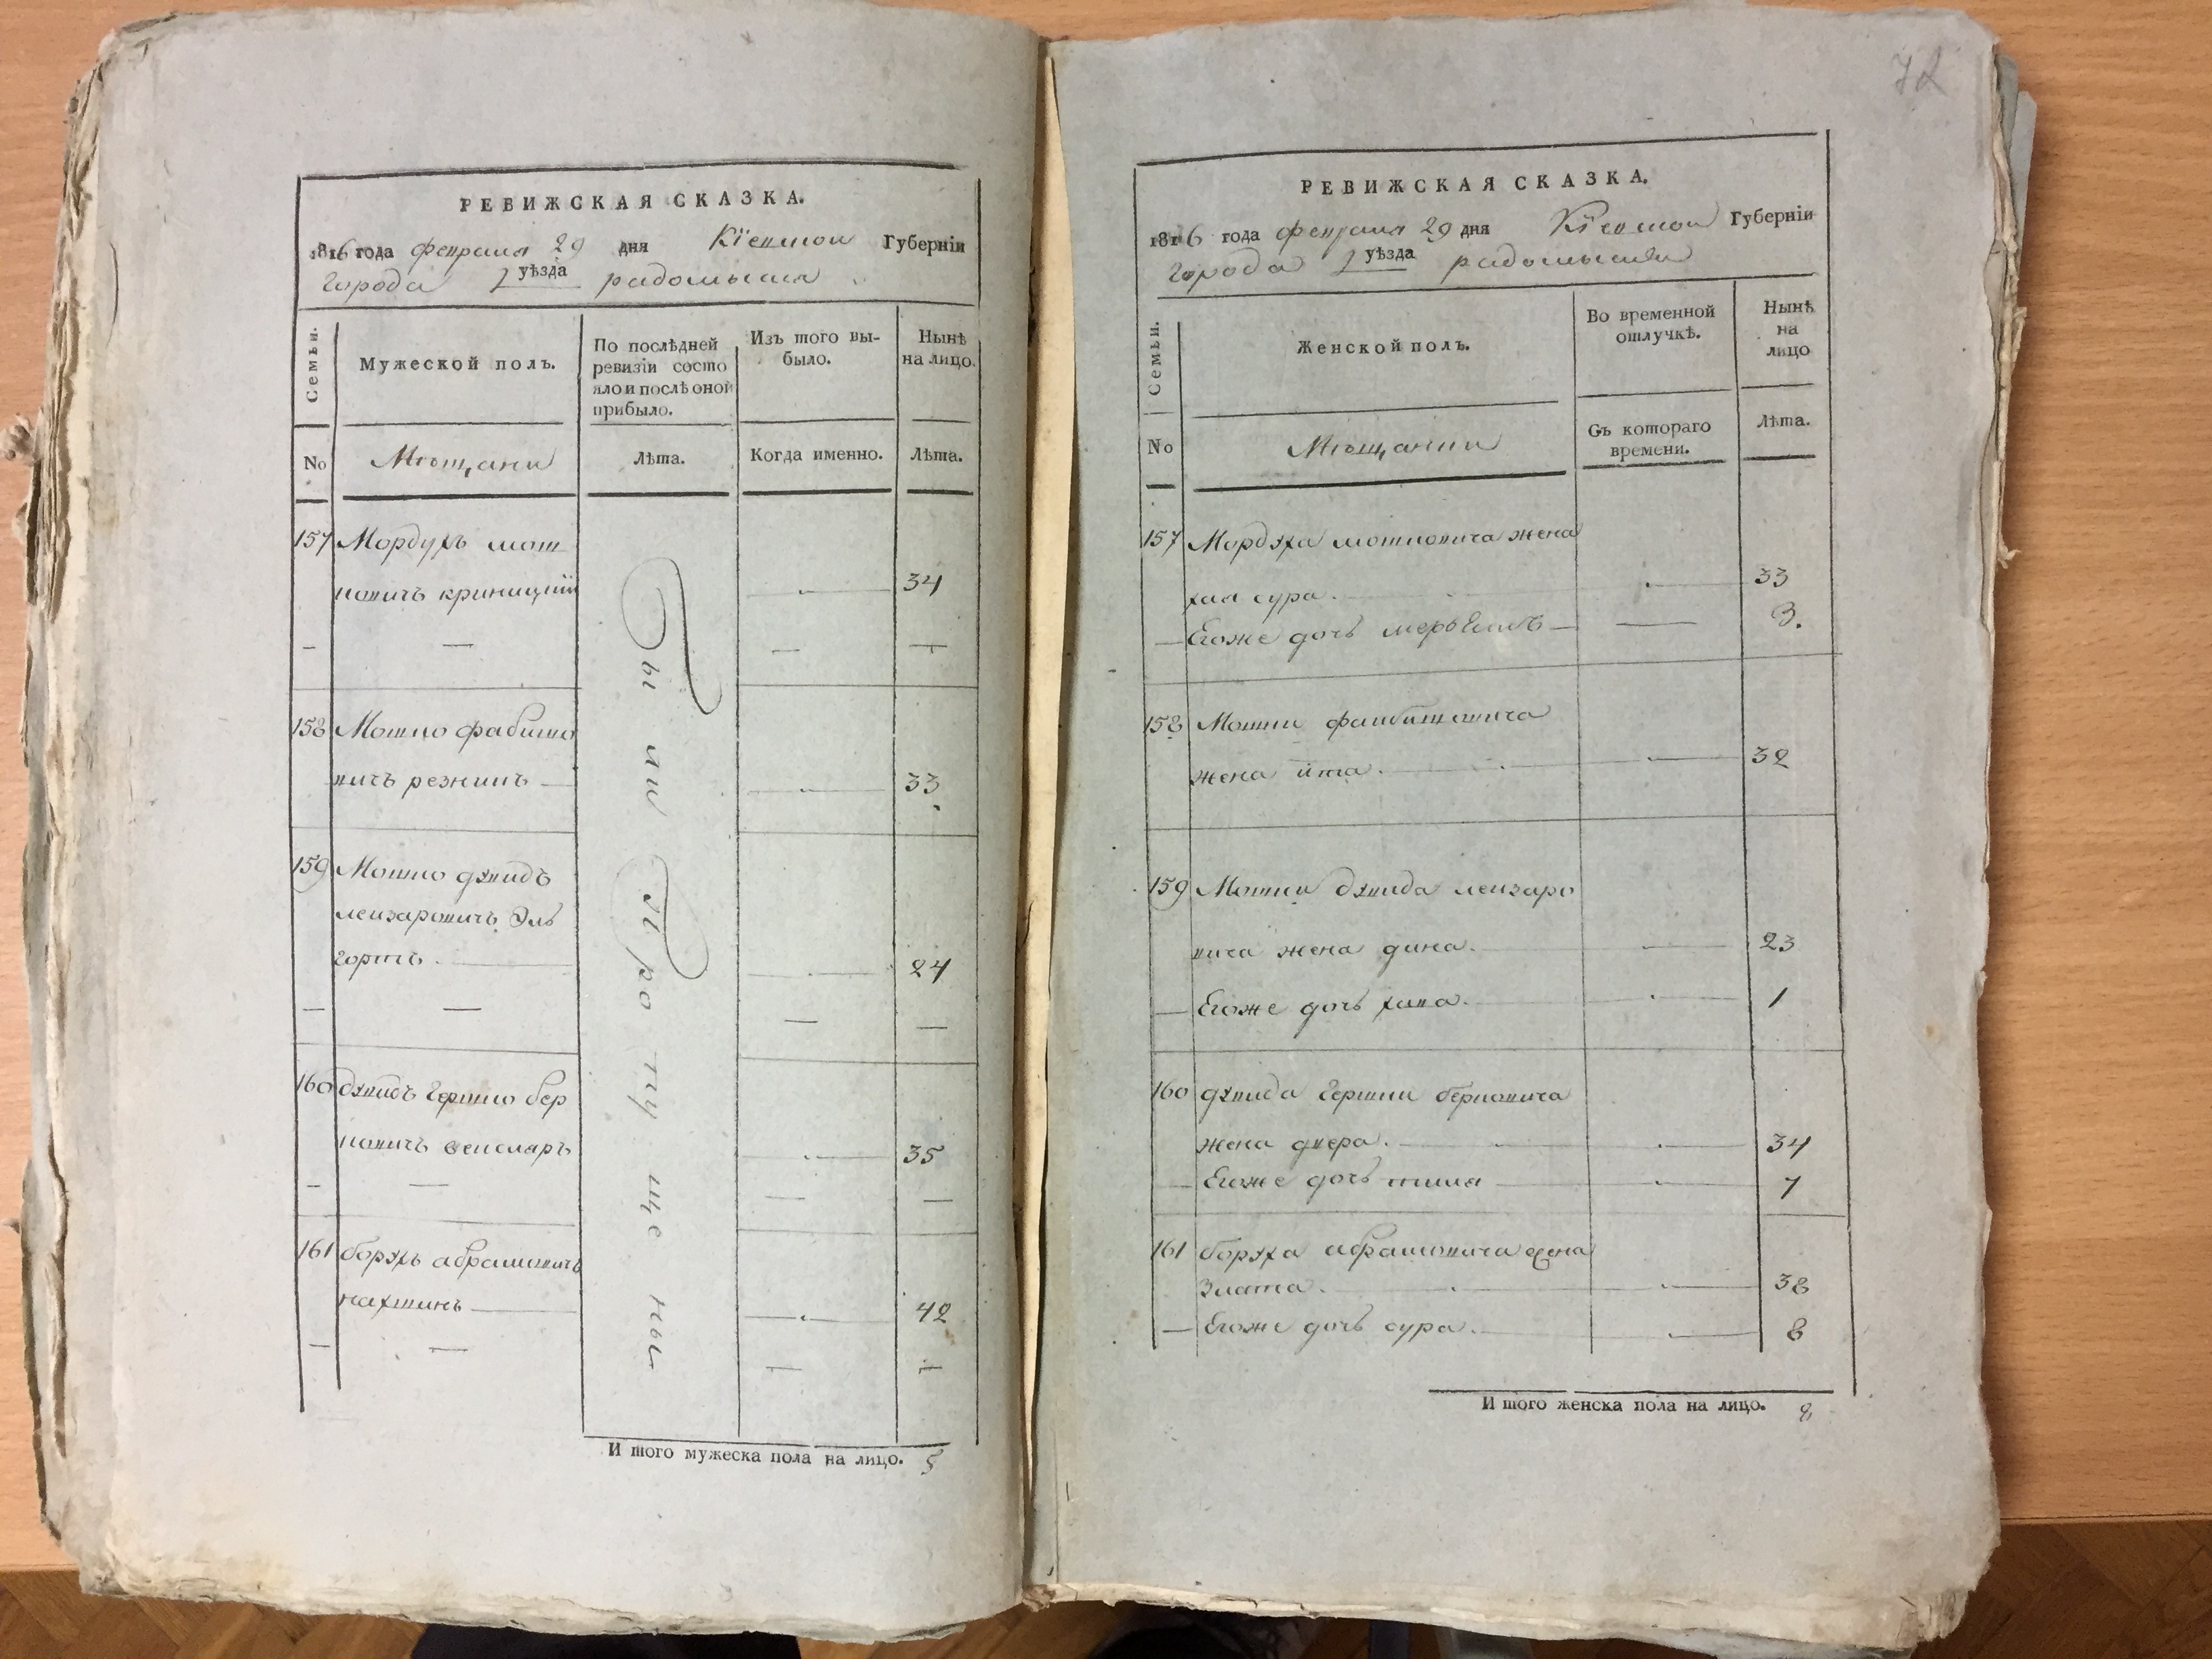 РЕВИЖСКАЯ СКАЗКА.
1816 года февраля 29 дня Кіевской Губерніи
города уѣзда радомысля
Семьи.
Мужеской полъ.
По послѣдней
ревизіи состо
яло и послѣ оной
прибыло.
Изъ того вы-
было.
Нынѣ
на лицо.
No
Мещани
Лѣта.
Когда именно.
Лѣта.
157 Мордухъ мош
ковичъ криницкій 34
158 Мошко фабишо
вичъ резникъ 33
159 Мошко дувидъ
лейзаровичъ Эль
гортъ 24
160 дувидъ Гершко бер
ковичъ 35
161 борухъ абрамовичъ
нахманъ 42
Вы ли Про пу ще ны
И того мужеска пола на лицо. 5
72
РЕВИЖСКАЯ СКАЗКА.
1816 года февраля 29 дня Кіевской Губерніи
Города уѣзда радомысля
Семьи.
Женской полъ.
Во временной
отлучкѣ.
Нынѣ
на
лицо
No
Мещанки
Съ котораго
времени.
Лѣта.
157 Мордуха мошковича жена
хая сура. 33
Егоже дочь 3.
158 Мошки файбишовича
жена ита. 32
159 Мошки дувида лейзаро
вича жена дина. 23
Егоже дочь хава. 1
160 дувида Гершки берковича
жена двера. 34
Егоже дочь 7
161 боруха абрамовича жена
Злата. 38
Егоже дочь сура. 8
И того женска пола на лицо. 9